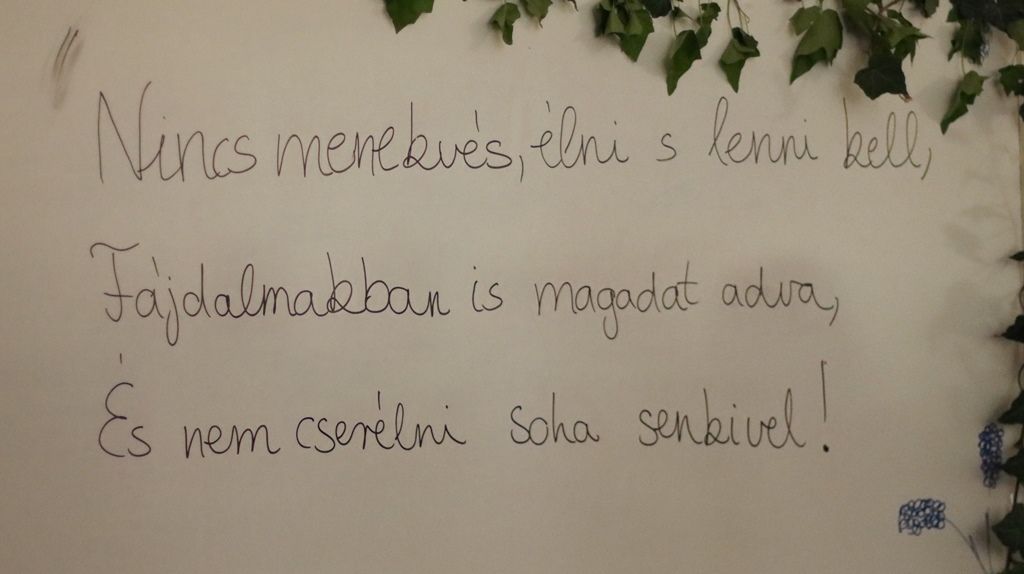 Nincs menekvés, élni s lenni kell,
Fájdalmakban is magadat adva,
És nem cserélni soha senkivel!